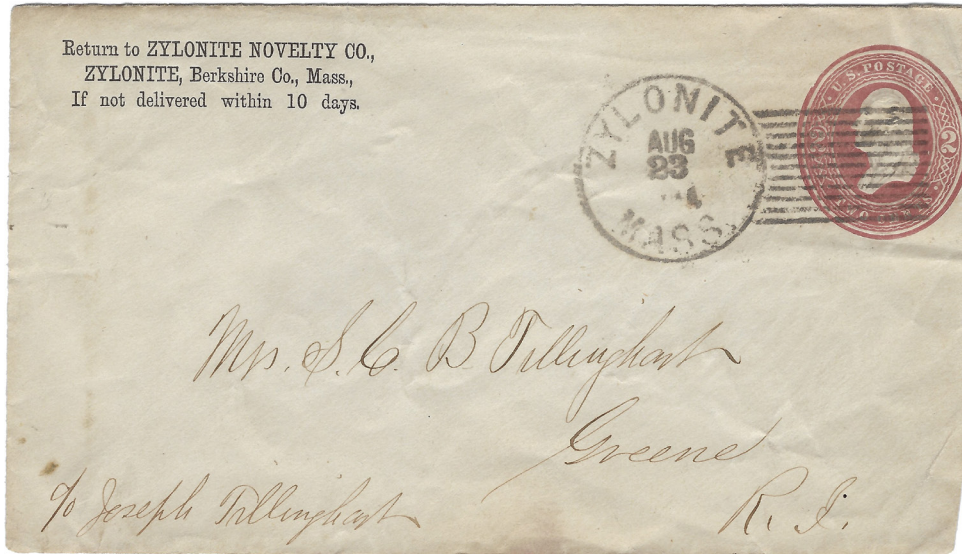 Return to ZYLONITE NOVELTY CO.,
ZYLONITE, Berkshire Co., Mass.,
If not delivered within 10 days.
ZYLONITE
AUG
23
MASS.
U.S. POSTAGE
2
Mrs. S. C. B. Tillinghast
Greene
R. I.
c/o Joseph Tillinghast